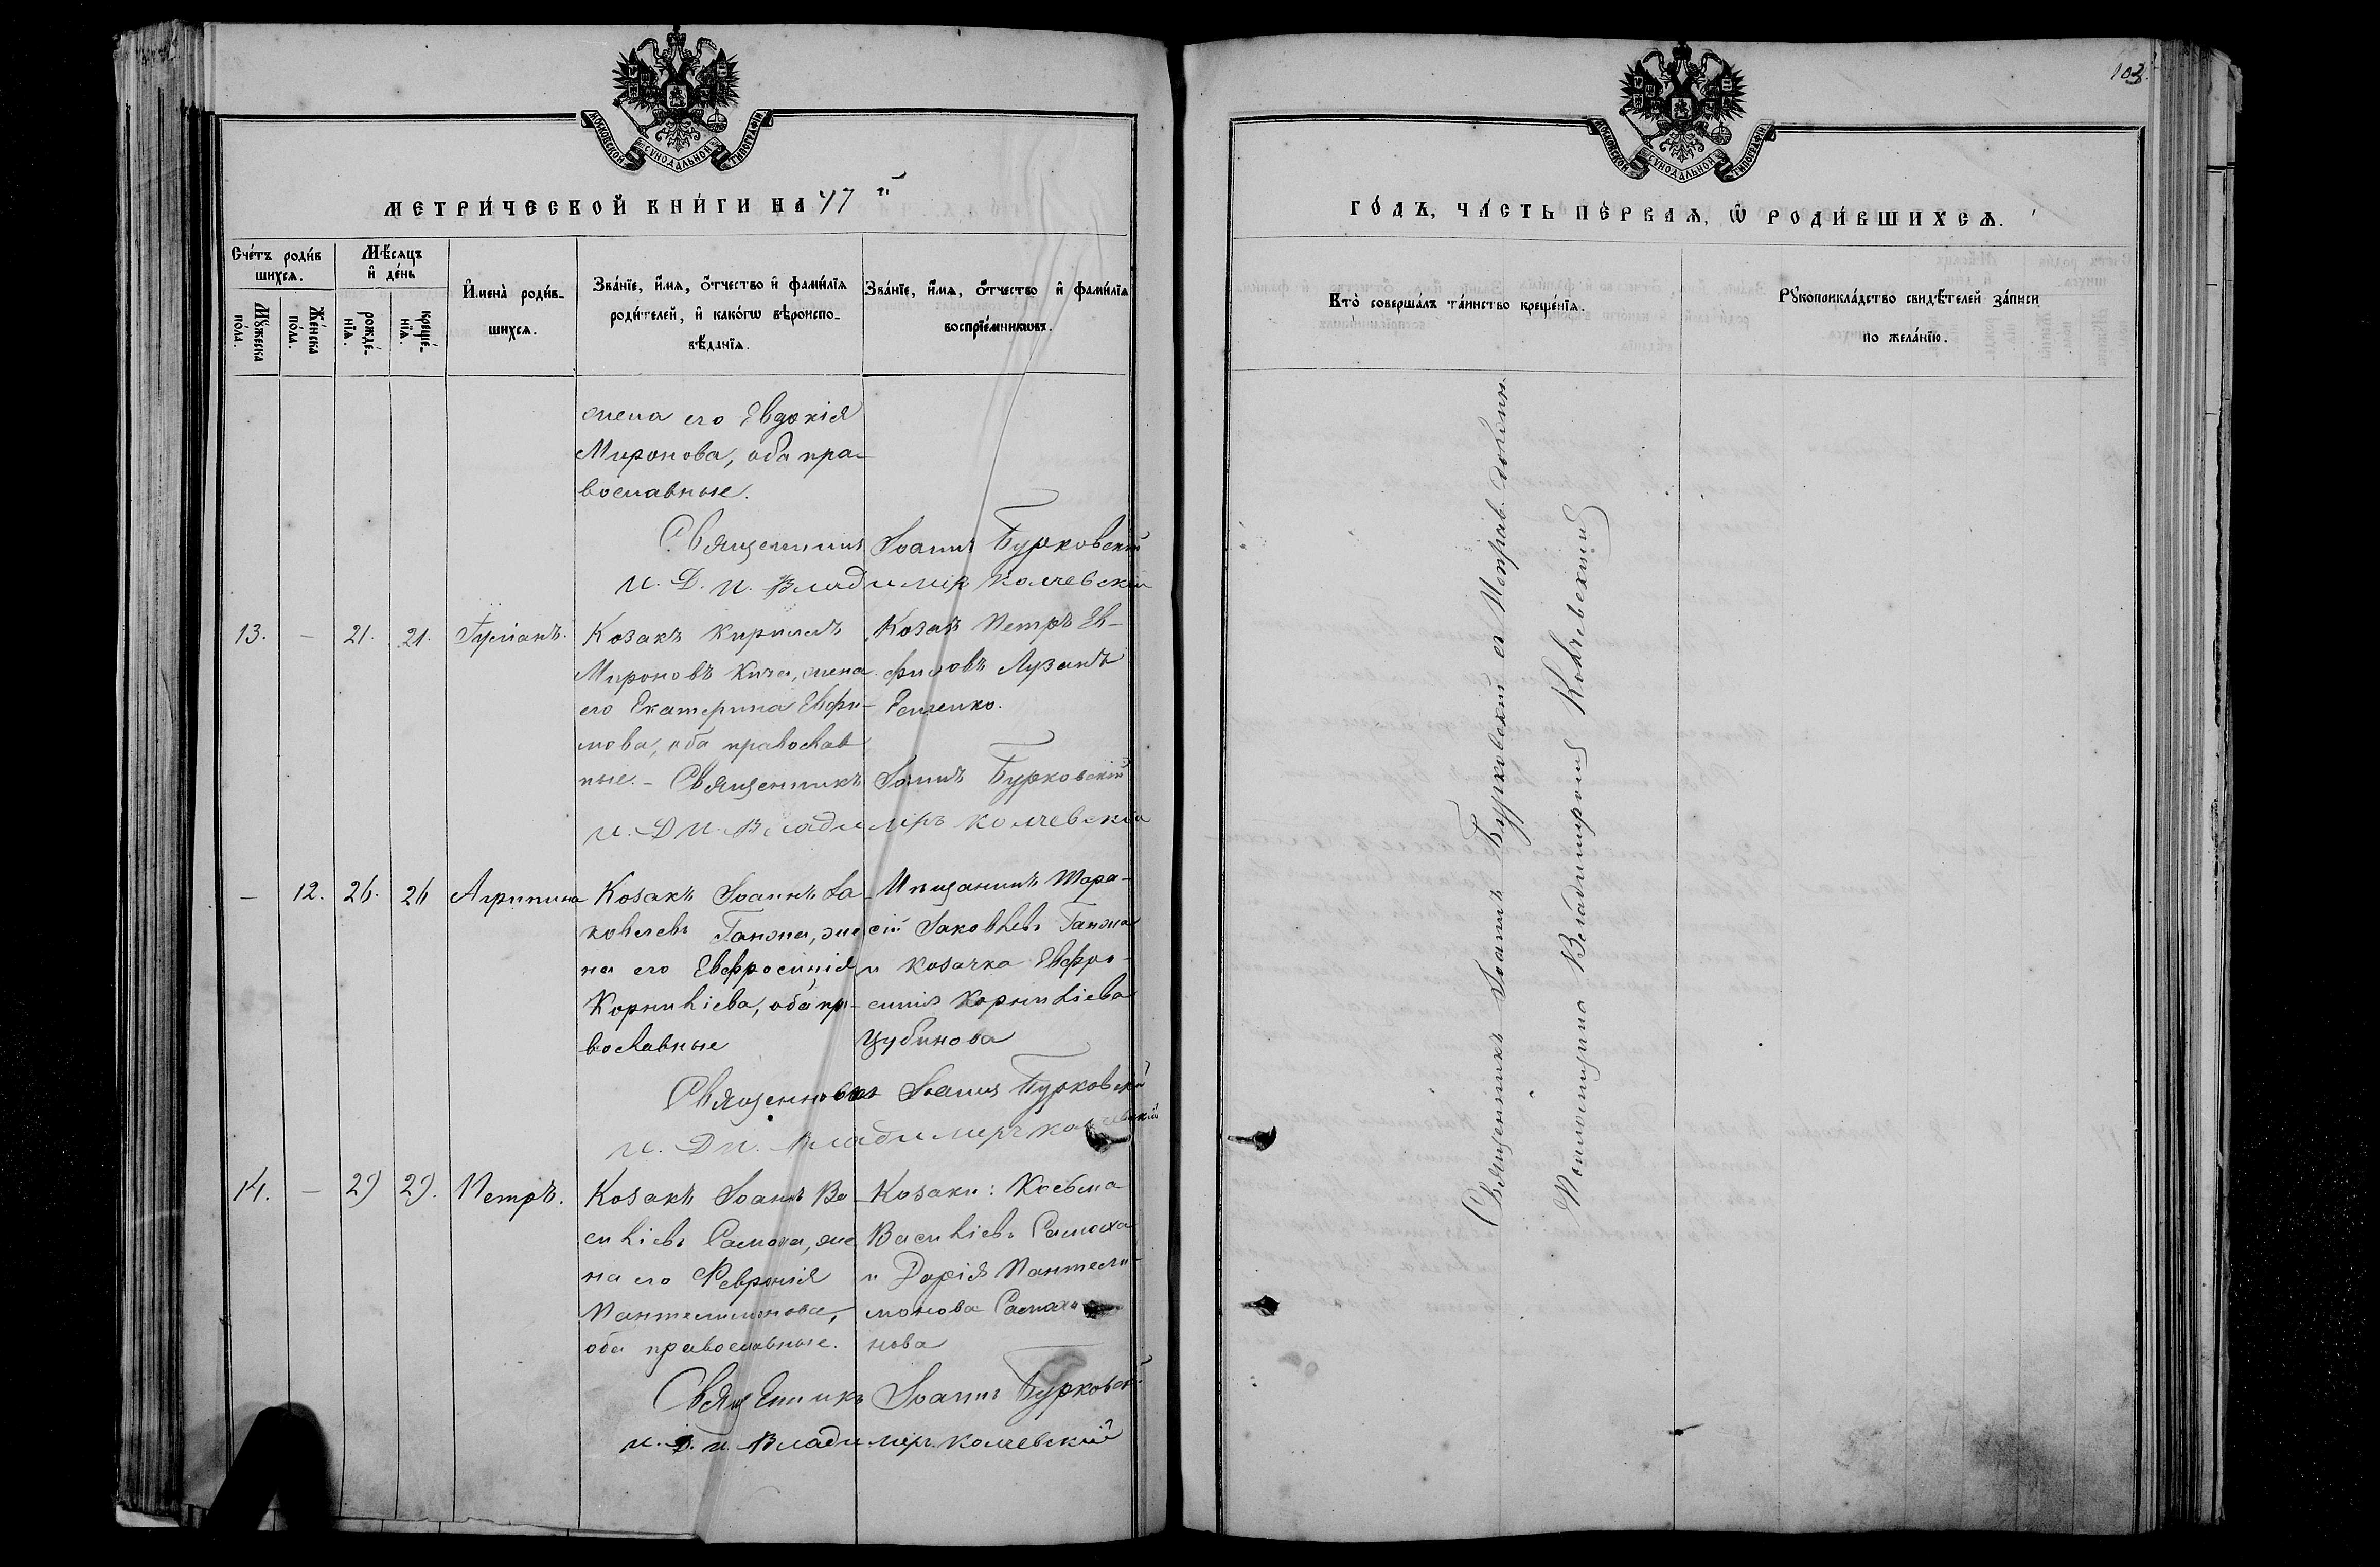 МОСКОВСКОЙ СѴНОДАЛЬНОЙ ТИПОГРАФІИ
МЕТРИ́ЧЕСКОЙ КНИ́ГИ НА 77 й
Сче́тъ роди́в
шихсѧ.
Мꙋ́жеска
по́ла.
Же́нска
по́ла.
Мѣ́сѧцъ
и҆ де́нь
рожде́-
нїѧ.
креще́-
нїѧ.
И҆мена̀ роди́в-
шихсѧ.
Зва́нїе, и҆́мѧ, ѻ҆́тчество и҆ фами́лїѧ
роди́телей, и҆ како́гѡ вѣроиспо-
вѣ́данїѧ.
Зва́нїе, и҆́мѧ, ѻ҆́тчество и҆ фами́лїѧ
воспрїе́мникѡвъ.
жена его Евдокія
Миронова, оба пра-
вославные.
Священникъ Іоаннъ Бурковскій
И. Д. П. Владиміръ Колчевскій
13. – 21. 21. Гуріанъ. Козакъ Кириллъ
Мироновъ Кича, жена
его Екатерина Евфи-
мова, оба православ
ные. –
Козакъ Петръ Ев-
фимовъ
Священникъ Іоаннъ Бурковскій
И. Д. П. Владиміръ Колчевскій
– 12. 26. 26 Агрипина Козакъ Іоаннъ Іа-
ковлевъ Ганжа, же
на его Евфросинія
Корниліева, оба пра-
вославные
Мѣщанинъ Тара-
сій Іаковлевъ Ганжа
и козачка Евфро-
синія Корниліева
Цубинова
Священникъ Іоаннъ Бурковскій
И. Д. П. Владиміръ Колчевскій
14. – 29 29. Петръ. Козакъ Іоаннъ Ва
силіевъ Самоха, же
на его Февронія
Пантелимонова,
оба православные.
Козаки: Косьма
Василіевъ Самоха
и Дарія Пантели-
монова Самоха
нова
Священникъ Іоаннъ Бурковскій
И. Д. П. Владиміръ Колчевскій
103.
МОСКОВСКОЙ СѴНОДАЛЬНОЙ ТИПОГРАФІИ
ГО́ДЪ, ЧА́СТЬ ПЕ́РВАѦ, Ѡ҆ РОДИ́ВШИХСѦ.
Кто̀ соверша́лъ та́инство креще́нїѧ.
Рꙋкоприкла́дство свидѣ́телей за́писи
по жела́нїю.
Священникъ Іоаннъ Бурковскій съ Исправ. должн.
Псаломщика Владиміромъ Колчевскимъ